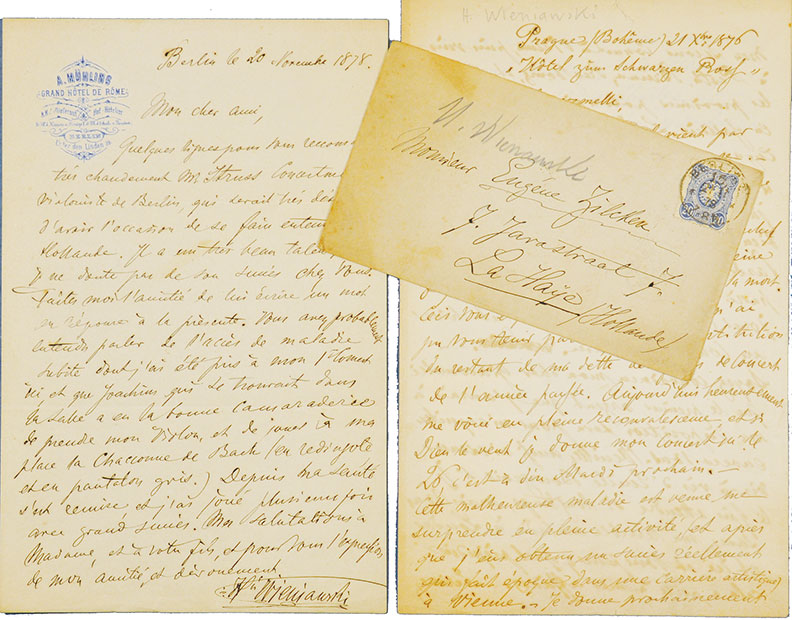 A. MÜHLING
GRAND HÔTEL DE RÔME
BERLIN
Unter den Linden 39
Berlin le 20 Novembre 1878.
Mon cher ami,
Quelques lignes pour vous recom
très chaudement Mr Struss Concertm
violoniste de Berlin, qui serait très dés
d'avoir l'occasion de se faire enten
Hollande. Il a un très beau talen
je ne doute pas de son succès chez Vous.
Faites moi l'amitié de lui écrire un mot
en réponse à la présente. Vous avez probablement
entendu parler de l'accès de maladie
subite dont j'ai été pris à mon 1er Concert
ici et que Joachim qui se trouvait dans
la salle a eu la bonne camaraderie
de prendre mon Violon, et de jouer à ma
place la Chaconne de Bach (en redingote
et en pantalon gris.) Depuis ma santé
s'est remise et j'ai joué plusieurs fois
avec grand succès. Mes salutations à
Madame, et à votre fils, et pour Vous l'expression
de mon amitié, et dévouement.
Hri Wieniawski
H. Wieniawski
Monsieur Eugène Zilcken
7. Javastraat 7.
La Haye (Hollande)
BERLIN
H. Wieniawski
Prague (Bohême) 21 Xbre 1876
"Hôtel zum Schwarzen Ross"
vient par
la mort.
j'ai
du restant de ma dette de Concert
de l'année passée. Aujourd'hui heureusement
me voici en pleine reconvalescence, et si
Dieu le veut je donne mon Concert ici le
26 c'est à dire Mardi prochain.
Cette malheureuse maladie est venue me
surprendre en pleine activité, et après
que j'eus obtenu un succès réellement
qui fait époque dans une carrière artistique
à Vienne. Je donne prochainement